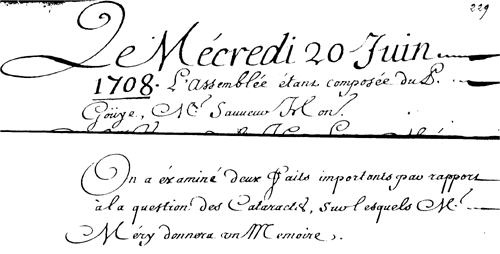 229
Le Mécredi 20 Juin
1708. L'Assemblée étant composée du P.
Goüye, Mrs Sauveur Hon.
On a éxaminé deux faits importants par rapport
à la question des Cataractes, sur lesquels Mr.
Méry donnera un Memoire.